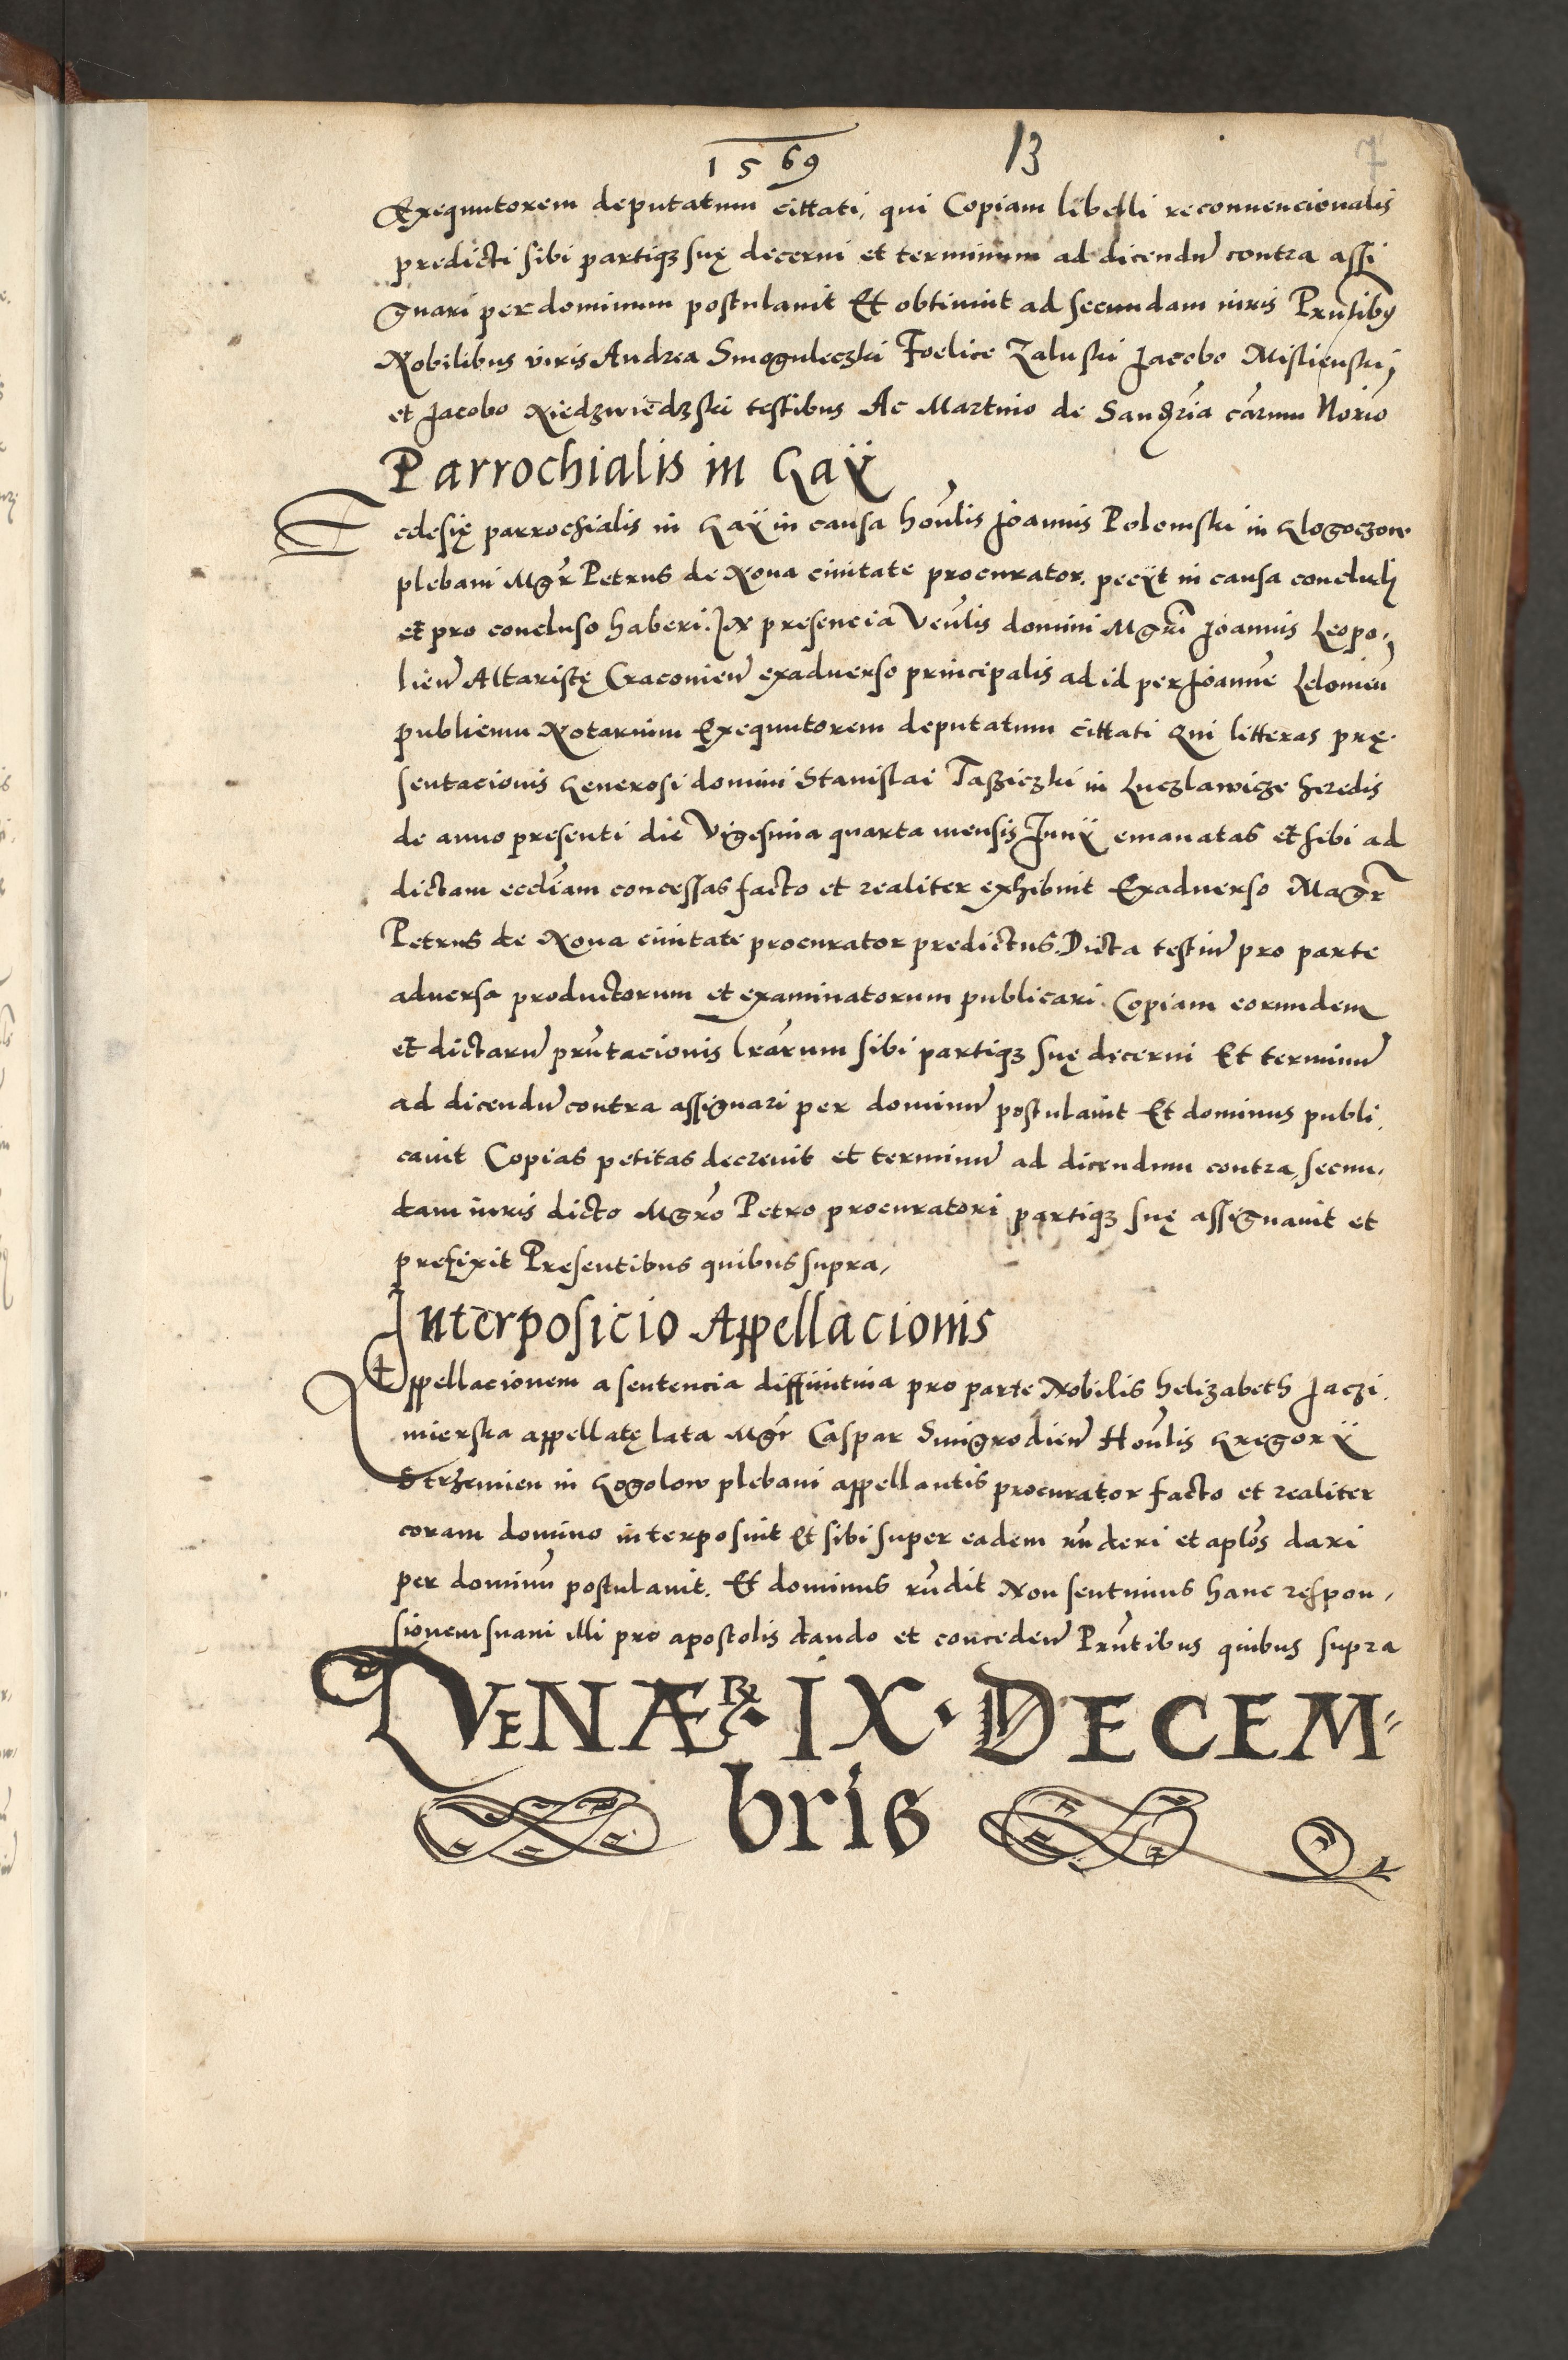 1569 13 7
Exequutorem deputatum cittati, qui Copiam libelli reconuencionalis
predicti sibi partiqȝ suę decerni et terminum ad dicendũ contra assi
gnari per dominum postulauit Et obtinuit ad secundam iuris Prñtibus
Nobilibus viris Andrea Smoguleczki Foelice Zaluski Jacobo Mislienski,
et Jacobo Niedzwiedzski testibus Ac Martino de cãrum Norio
Parrochialis in Gaÿ
Ecclesię parrochialis in Gaÿ in causa hoñlis Joannis Polomski in Glogoczow
plebani Mgr̃ Petrus de Noua ciuitate procurator. peciit in causa concludi
et pro concluso haberi. In presencia Veñlis domini Mgrĩ Joannis Leopo,
lieñ Altaristę Cracouieñ exaduerso principalis ad id per Joannẽ Lelouieñ
publicum Notarium Exequutorem deputatum cittati Qui litteras prę.
sentacionis Generosi domini Stanislai Taßiczki in Luczlawicze heredis
de anno presenti die Vigesima quarta mensis Junÿ emanatas et sibi ad
dictam eccliam concessas facto et realiter exhibuit Exaduerso Magr̃
Petrus de Noua ciuitate procurator predictus. Dicta testiũ pro parte
aduersa productorum et examinatorum publicari. Copiam eorundem
et dictarũ prñtacionis lrãrum sibi partiqȝ suę decerni Et terminũ
ad dicendũ contra assignari per dominũ postulauit Et dominus publi,
cauit Copias petitas decreuit et terminũ ad dicendum contra, secun,
dam iuris dicto Mgrõ Petro procuratori partiqȝ suę assignauit et
prefixit Presentibus quibus supra,
Interposicio Appellacionis
Appellacionem a sentencia diffinitiua pro parte Nobilis Helizabeth Jaczi.
mierska appellatę lata Mgr̃ Caspar Smigrodieñ Hoñlis Gregorÿ
Strzemien in Gogolow plebani appellantis procurator facto et realiter
coram domino interposuit Et sibi super eadem rñderi et aplõs dari
per dominũ postulauit. Et dominus rñdit Non sentimus hanc respon,
sionem suam illi pro apostolis dando et concedeñ Prñtibus quibus supra
VENÆR̃ · IX · DECEM⸗
bris